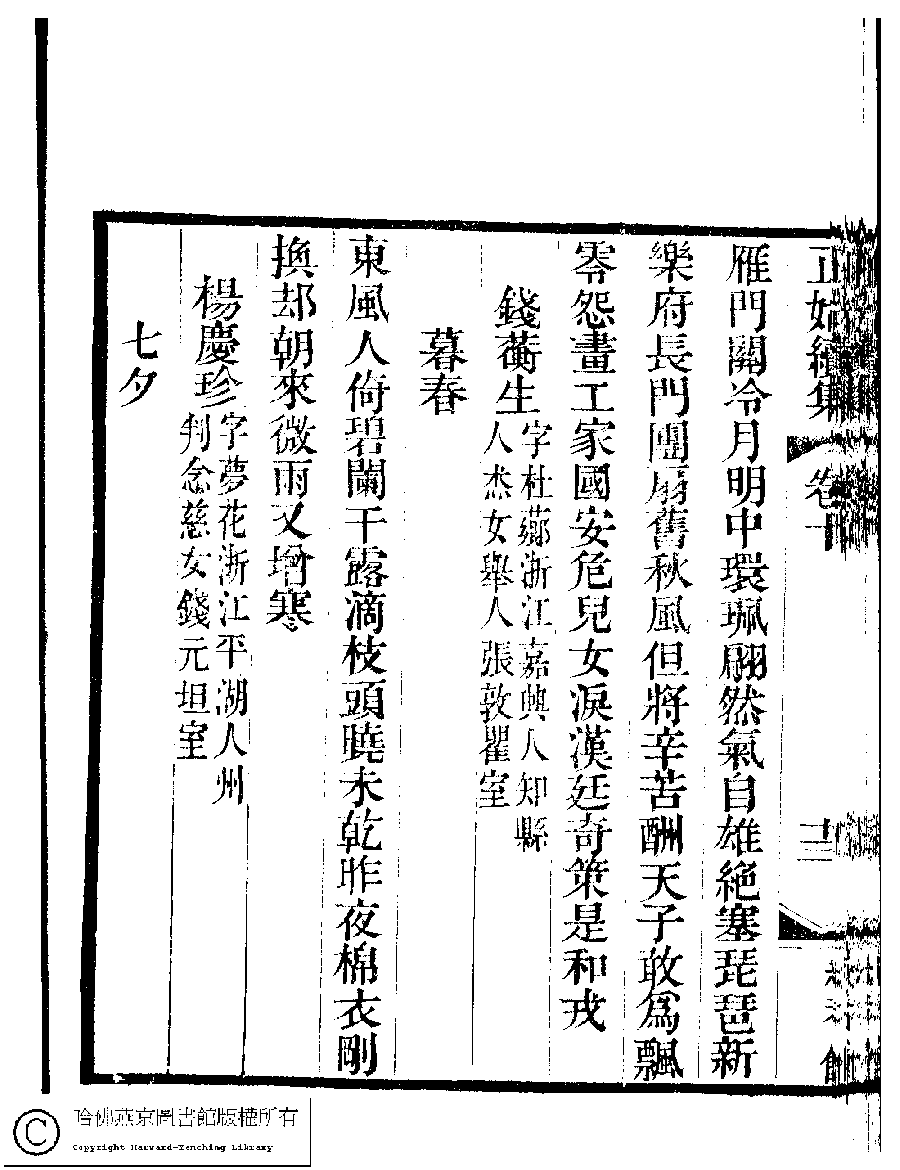 正始續集 卷十 十二
雁門關冷月明中環珮翩然氣自雄絕塞琵琶新
樂府長門團扇舊秋風但將辛苦酬天子敢爲飄
零怨畫工家國安危兒女淚漢廷奇策是和戎
錢蘅生 字杜薌浙江嘉興人知縣
人杰女舉人張敦瞿室
暮春
東風人倚碧闌干露滴枝頭曉未乾昨夜棉衣剛
換却朝來微雨又增寒
楊慶珍 字夢花浙江平湖人州
判念慈女錢元坦室
七夕
哈佛燕京圖書館版權所有
Copyright Harvard-Yenching Library